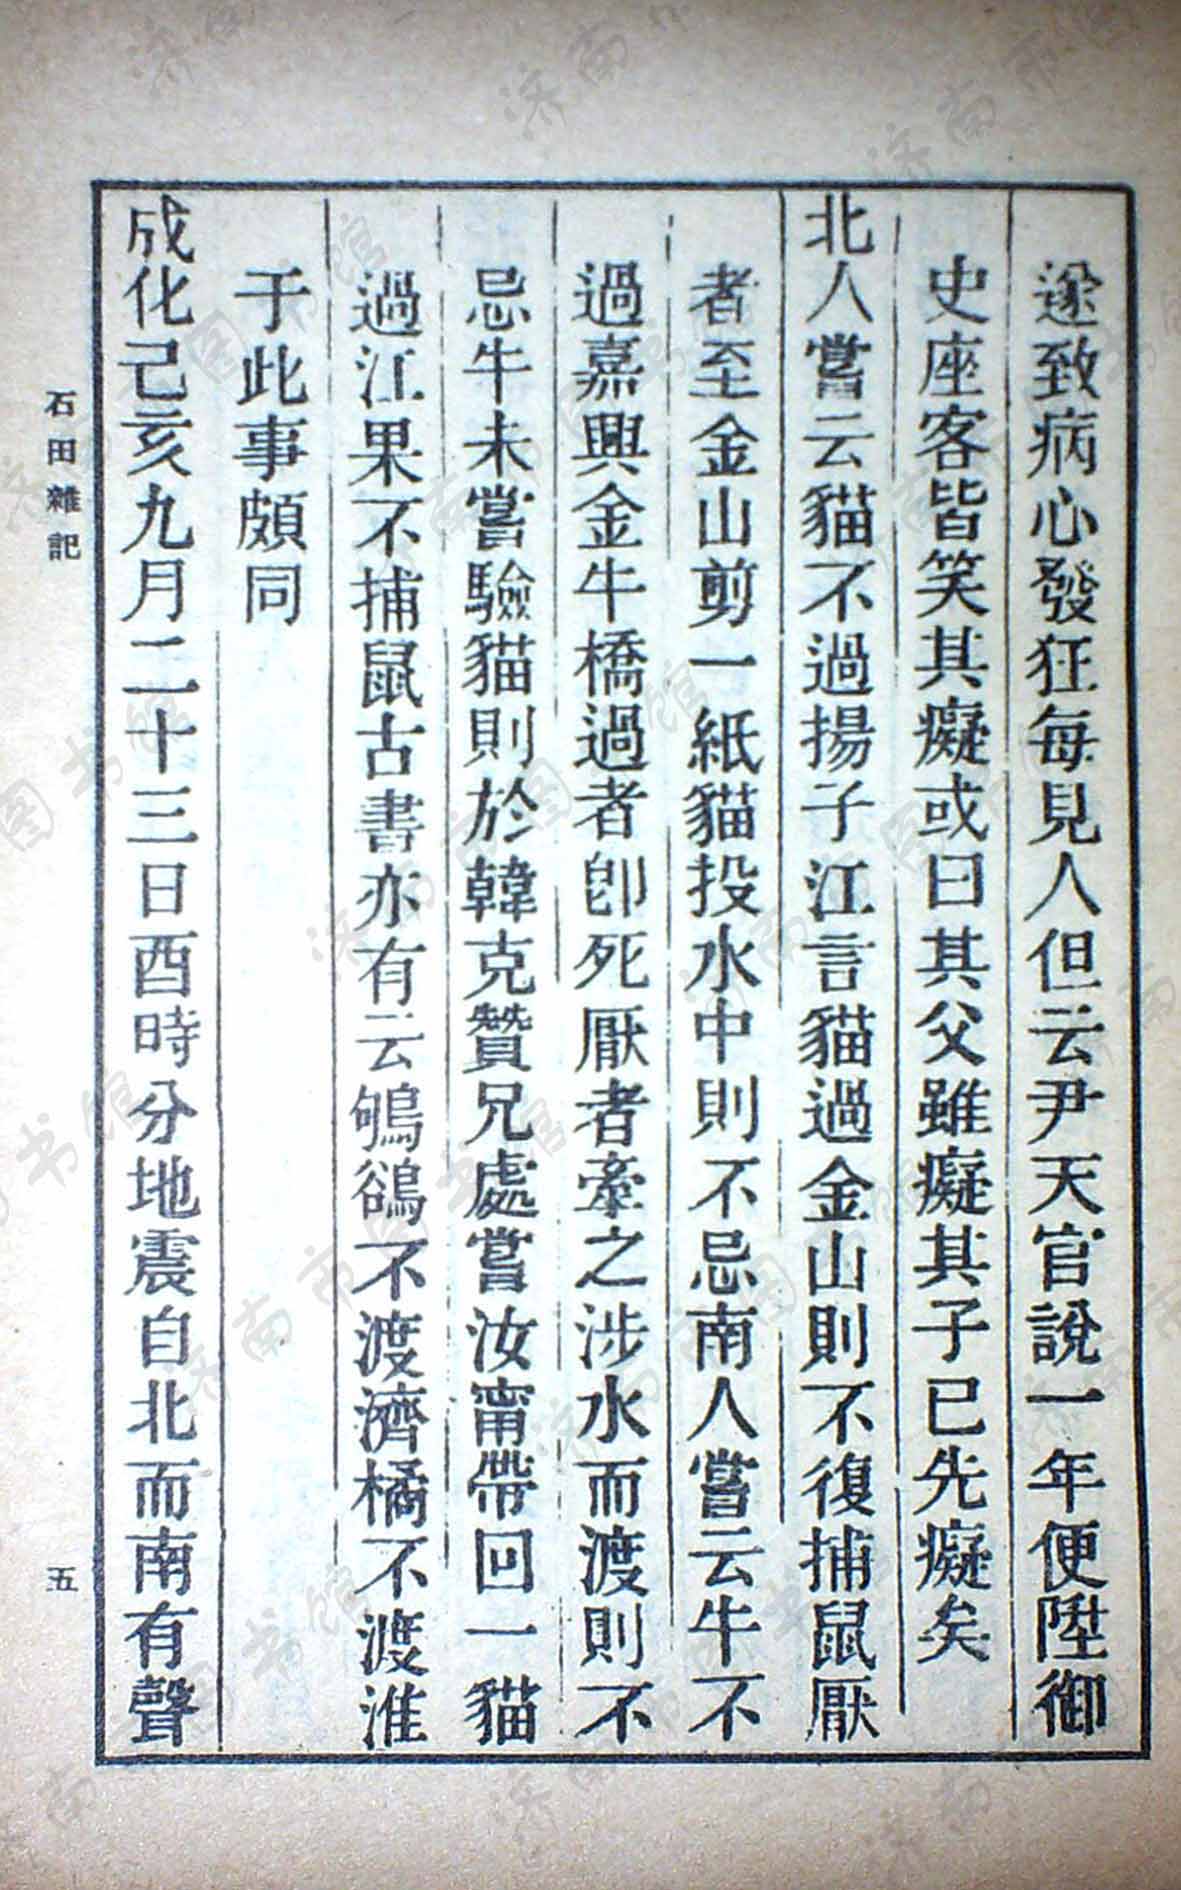 遂致病心發狂每見人但云尹天官說一年便陞御
史座客皆笑其癡或曰其父雖癡其子已先癡矣
北人嘗云貓不過揚子江言貓過金山則不復捕鼠厭
者至金山剪一紙貓投水中則不忌南人嘗云牛不
過嘉興金牛橋過者卽死厭者牽之涉水而渡則不
忌牛未嘗驗貓則於韓克贊兄處嘗汝甯帶回一貓
過江果不捕鼠古書亦有云鴝鵒不渡濟橘不渡淮
于此事頗同
成化己亥九月二十三日酉時分地震自北而南有聲
石田雜記
五
济南市图书馆